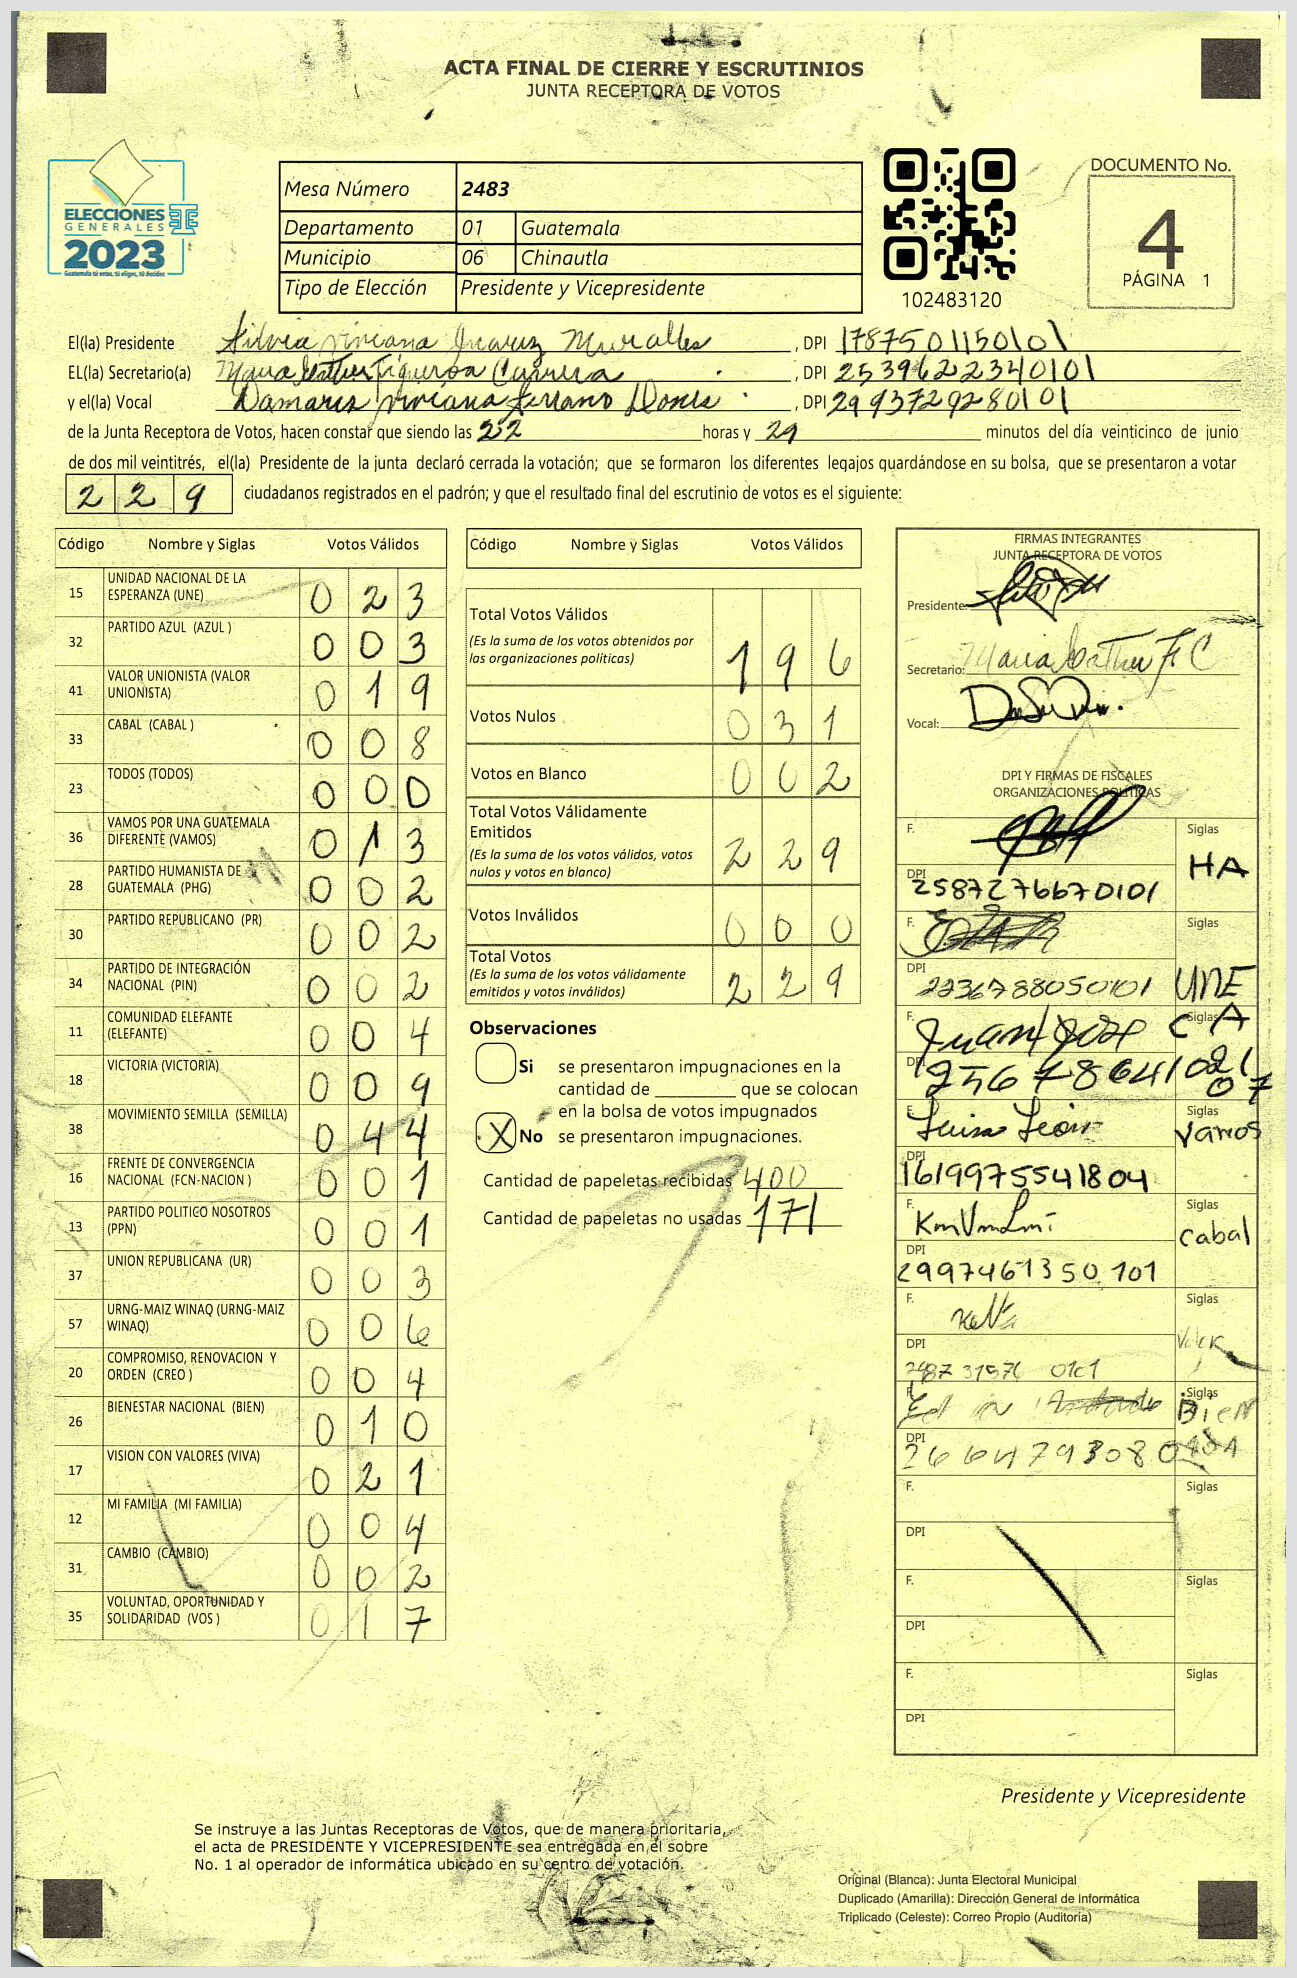 ACTA FINAL DE CIERRE Y ESCRUTINIOS
JUNTA RECEPTORA DE VOTOS
ELECCIONES
GENERALES
2023
Guatemala tú eres, tú eliges, tú decides
Mesa Número 2483
Departamento 01 Guatemala
Municipio 06 Chinautla
Tipo de Elección Presidente y Vicepresidente
102483120
DOCUMENTO No.
4
PÁGINA 1
El(la) Presidente Silvia Viviana Juarez Muralles, DPI 1787501150101
EL(la) Secretario(a) Maria Esther Figueroa Carrera, DPI 2539622340101
y el(la) Vocal Damaris Viviana Serrano, DPI 2993729280101
de la Junta Receptora de Votos, hacen constar que siendo las 22 horas y 29 minutos del día veinticinco de junio
de dos mil veintitrés, el(la) Presidente de la junta declaró cerrada la votación; que se formaron los diferentes legajos guardándose en su bolsa, que se presentaron a votar
229 ciudadanos registrados en el padrón; y que el resultado final del escrutinio de votos es el siguiente:
Código Nombre y Siglas Votos Válidos
15 UNIDAD NACIONAL DE LA ESPERANZA (UNE) 0 2 3
32 PARTIDO AZUL (AZUL ) 0 0 3
41 VALOR UNIONISTA (VALOR UNIONISTA) 0 1 9
33 CABAL (CABAL ) 0 0 8
23 TODOS (TODOS) 0 0 0
36 VAMOS POR UNA GUATEMALA DIFERENTE (VAMOS) 0 1 3
28 PARTIDO HUMANISTA DE GUATEMALA (PHG) 0 0 2
30 PARTIDO REPUBLICANO (PR) 0 0 2
34 PARTIDO DE INTEGRACIÓN NACIONAL (PIN) 0 0 2
11 COMUNIDAD ELEFANTE (ELEFANTE) 0 0 4
18 VICTORIA (VICTORIA) 0 0 9
38 MOVIMIENTO SEMILLA (SEMILLA) 0 4 4
16 FRENTE DE CONVERGENCIA NACIONAL (FCN-NACION ) 0 0 1
13 PARTIDO POLITICO NOSOTROS (PPN) 0 0 1
37 UNION REPUBLICANA (UR) 0 0 3
57 URNG-MAIZ WINAQ (URNG-MAIZ WINAQ) 0 0 6
20 COMPROMISO, RENOVACION Y ORDEN (CREO ) 0 0 4
26 BIENESTAR NACIONAL (BIEN) 0 1 0
17 VISION CON VALORES (VIVA) 0 2 1
12 MI FAMILIA (MI FAMILIA) 0 0 4
31 CAMBIO (CAMBIO) 0 0 2
35 VOLUNTAD, OPORTUNIDAD Y SOLIDARIDAD (VOS ) 0 1 7
Código Nombre y Siglas Votos Válidos
Total Votos Válidos 1 9 6
(Es la suma de los votos obtenidos por
las organizaciones políticas)
Votos Nulos 0 3 1
Votos en Blanco 0 0 2
Total Votos Válidamente
Emitidos 2 2 9
(Es la suma de los votos válidos, votos
nulos y votos en blanco)
Votos Inválidos 0 0 0
Total Votos 2 2 9
(Es la suma de los votos válidamente
emitidos y votos inválidos)
Observaciones
Si se presentaron impugnaciones en la
cantidad de ________ que se colocan
en la bolsa de votos impugnados
X No se presentaron impugnaciones.
Cantidad de papeletas recibidas 400
Cantidad de papeletas no usadas 171
FIRMAS INTEGRANTES
JUNTA RECEPTORA DE VOTOS
Presidente:
Secretario: Maria Esther F C
Vocal:
DPI Y FIRMAS DE FISCALES
ORGANIZACIONES POLÍTICAS
F. Siglas HA
DPI 2587276670101
F. Siglas UNE
DPI 2236788050101
F. Juan José Siglas CA
DPI
F. Luisa León Siglas Vamos
DPI 1619975541804
F. Siglas Cabal
DPI 2997461350101
F. Siglas
DPI
F. Siglas Bien
DPI
F. Siglas
DPI
F. Siglas
DPI
F. Siglas
DPI
Presidente y Vicepresidente
Se instruye a las Juntas Receptoras de Votos, que de manera prioritaria,
el acta de PRESIDENTE Y VICEPRESIDENTE sea entregada en el sobre
No. 1 al operador de informática ubicado en su centro de votación.
Original (Blanca): Junta Electoral Municipal
Duplicado (Amarilla): Dirección General de Informática
Triplicado (Celeste): Correo Propio (Auditoría)